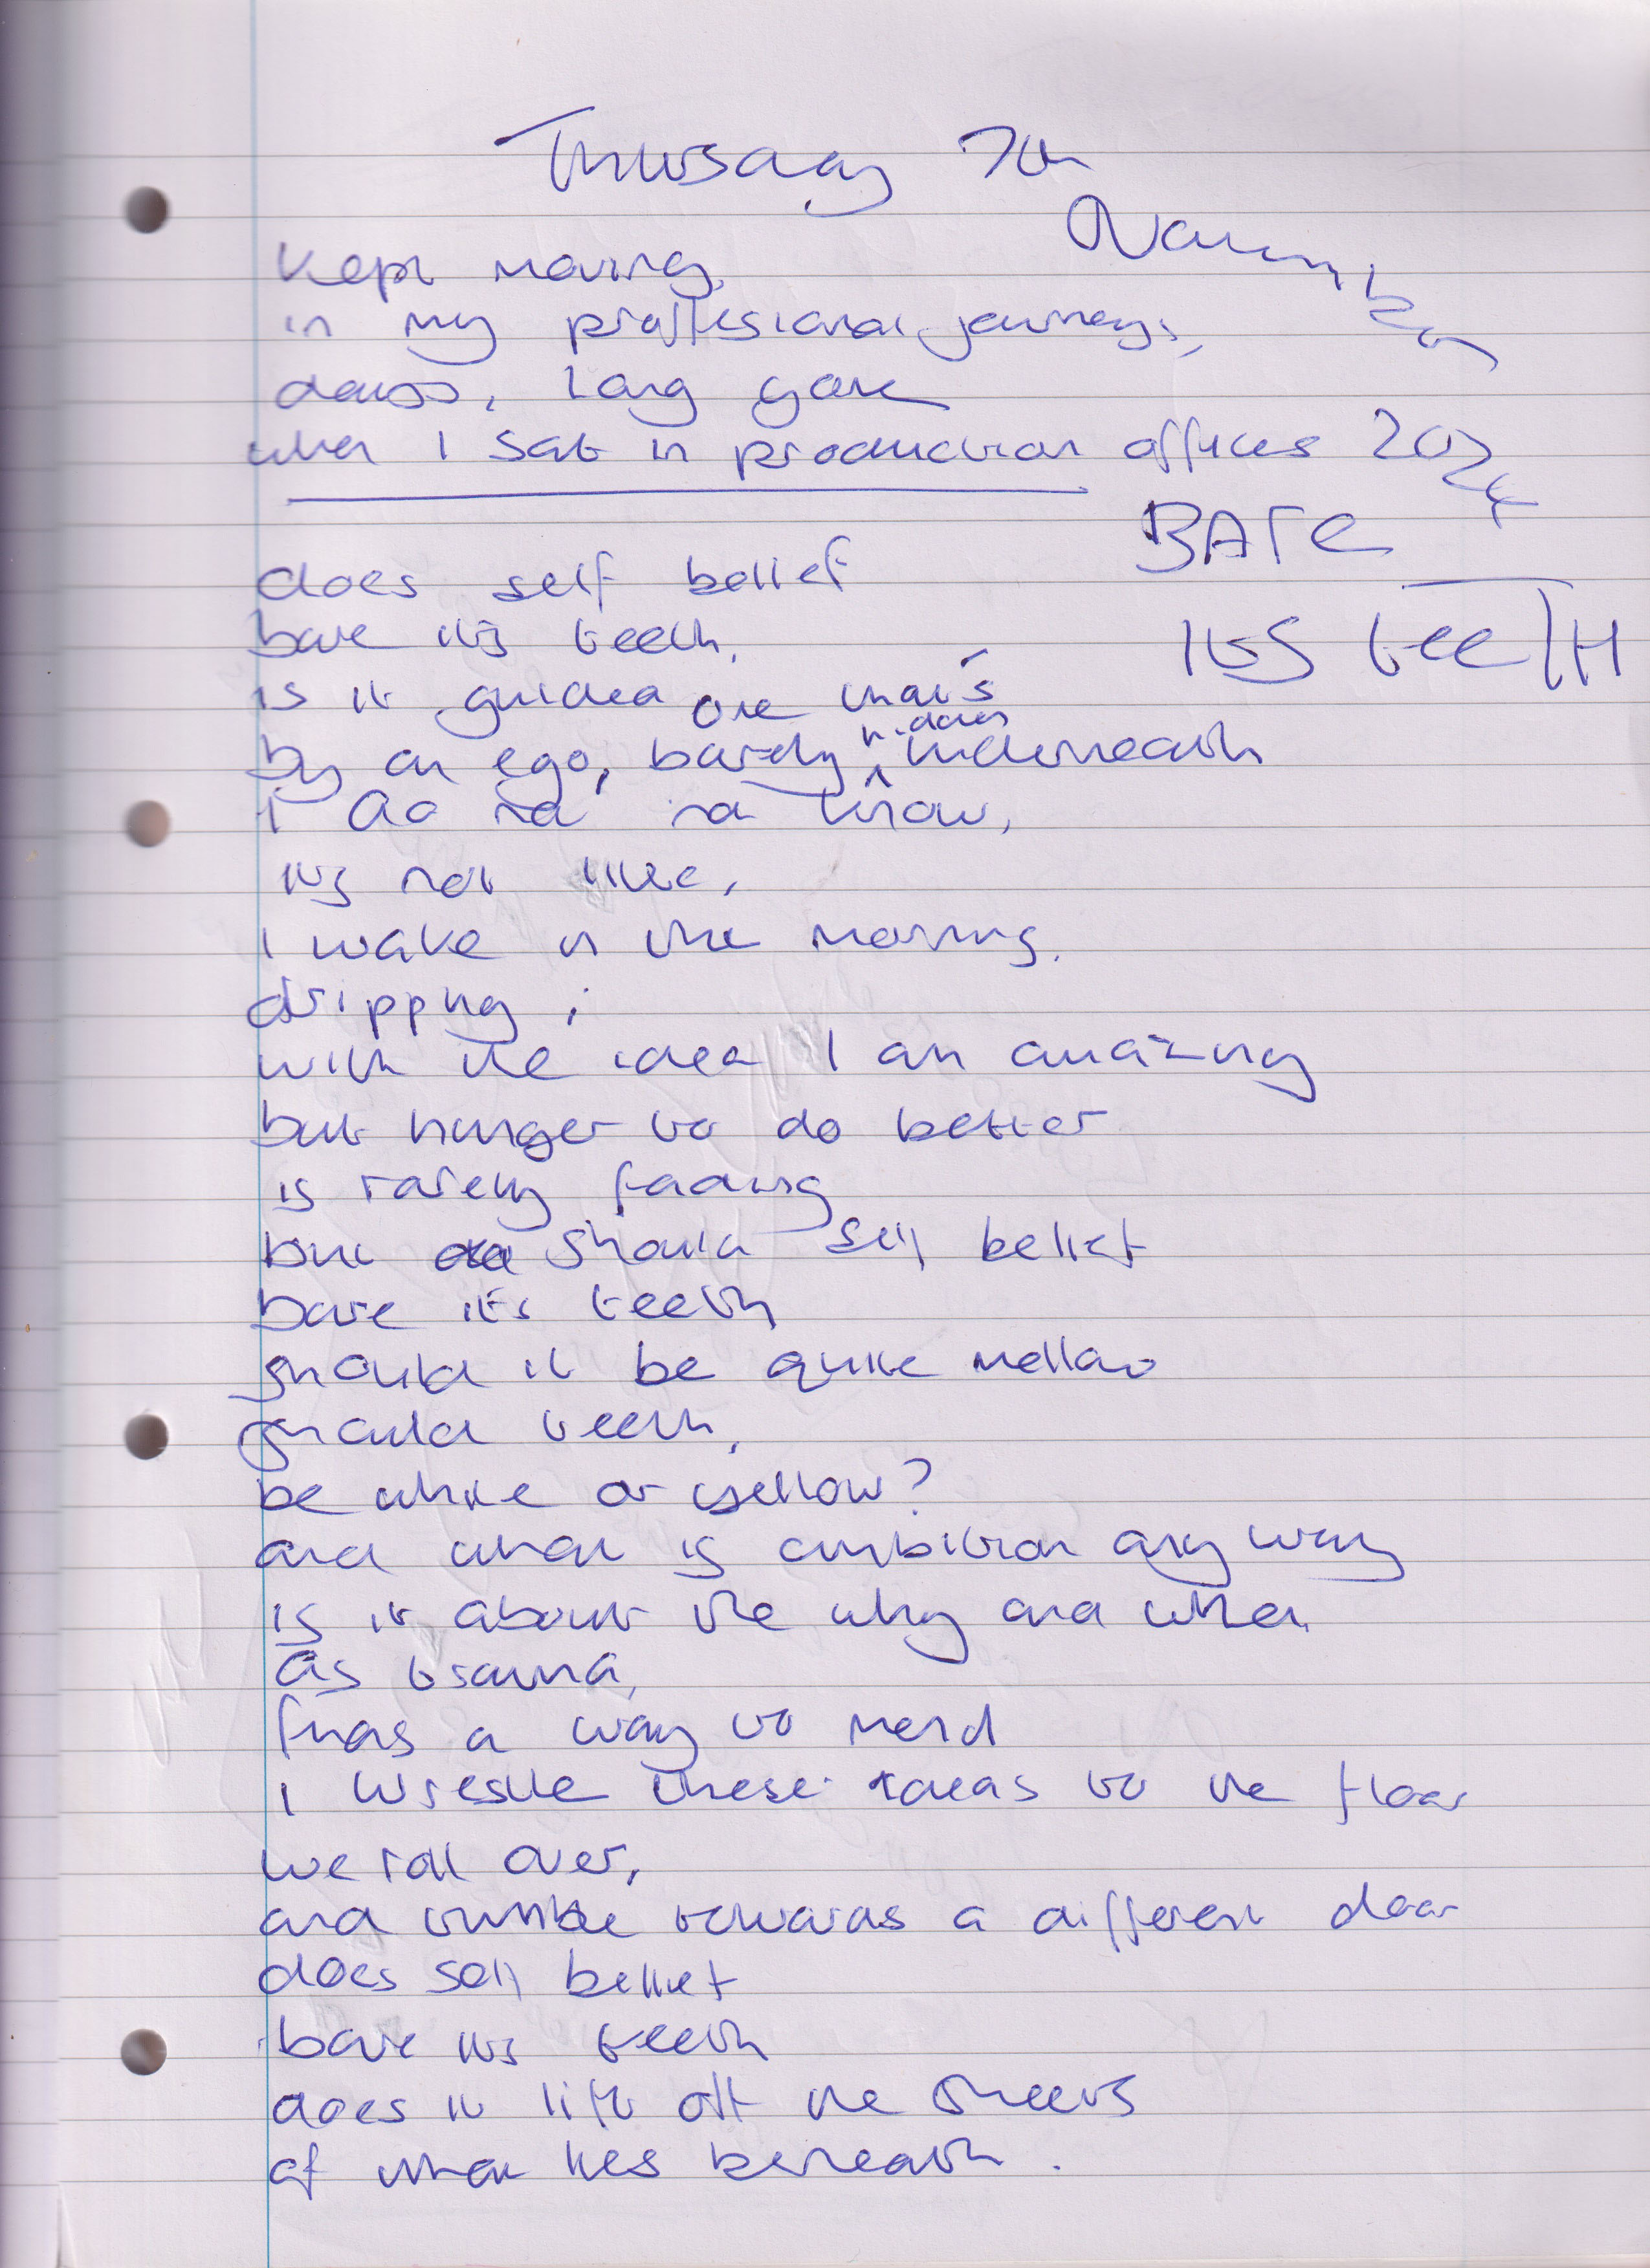 Thursday 7th
November
2024
Kept moving,
in my proffesional journeys,
days, long gone
when I sat in production offices
BARE
ITS teeTH
does self belief
bare its teeth,
is it guided one that's
by an ego, barely hidden underneath
I do not know,
its not like,
I wake in the morning.
dripping,
with the idea I am amazing
but hunger to do better
is rarely fading
but should self belief
bare its teeth
should it be quite mellow
should teeth,
be white or yellow?
and what is ambition any way
is it about the why and when
as trauma,
finds a way to mend
I wrestle these ideas to the floor
we roll over,
and tumble towards a different door
does self belief
bare its teeth
does it lift off the sheets
of what lies beneath.